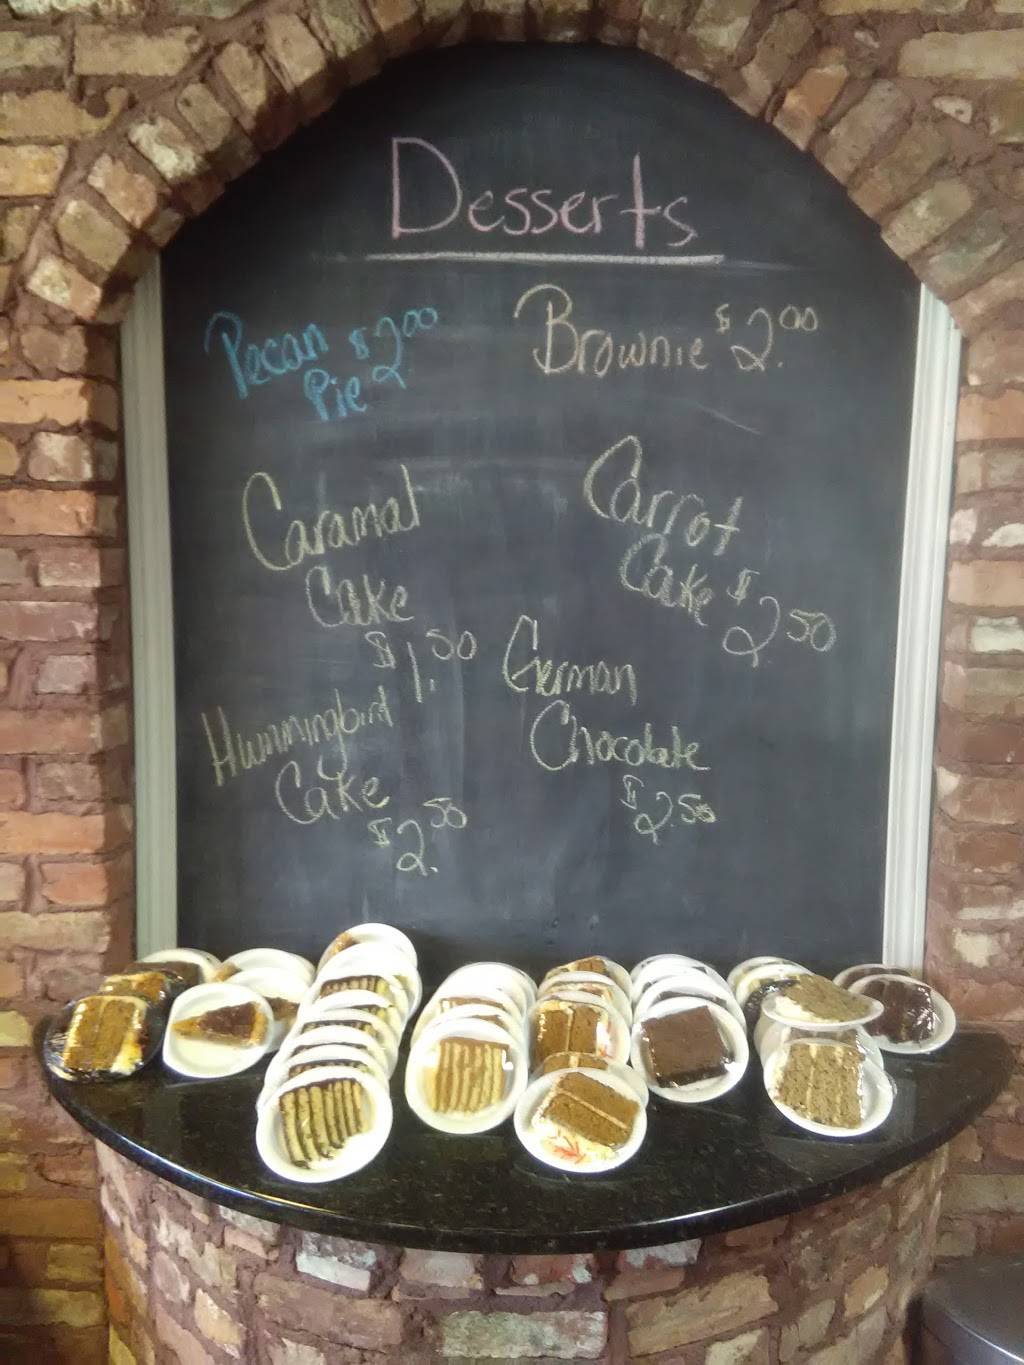 Desserts
Pecan $2.00
Pie
Brownie $2.00
Caramal
Cake
$1.50
Carrot
Cake $2.50
Hummingbird
Cake
$2.50
German
Chocolate
$2.50